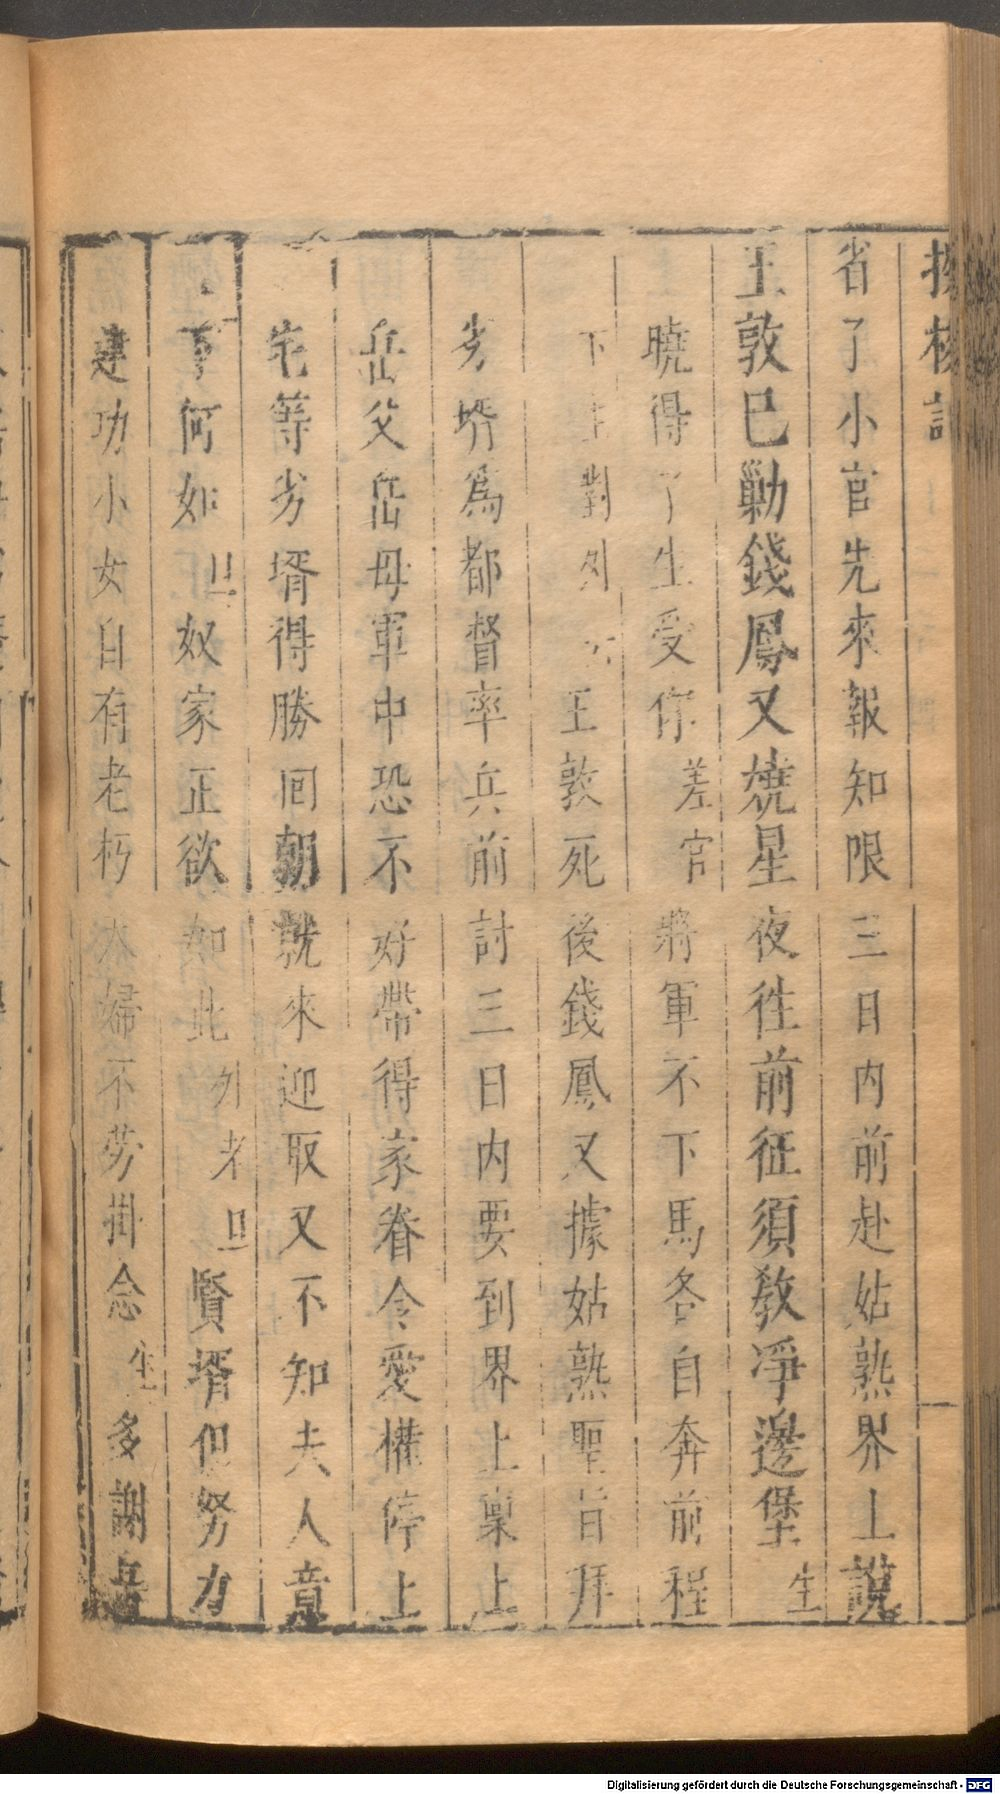 投梭記
省了小官先來報知限三日内前赴姑熟界上說
王敦巳勦錢鳳又燒星夜徃前征須教凈邊堡生
曉得了生受你差官將軍不下馬各自奔前程
下生對外王敦死後錢鳳又據姑熟聖旨拜
劣壻爲都督率兵前討三日内要到界上稟上
岳父岳母軍中恐不好帶得家眷令愛權停上
宅等劣壻得勝囘朝就來迎取又不知夫人意
下何如旦奴家正欲如此外老旦賢壻但努力
建功小女自有老朽夫婦不勞掛念生多謝吾
Digitalisierung gefördert durch die Deutsche Forschungsgemeinschaft - DFG